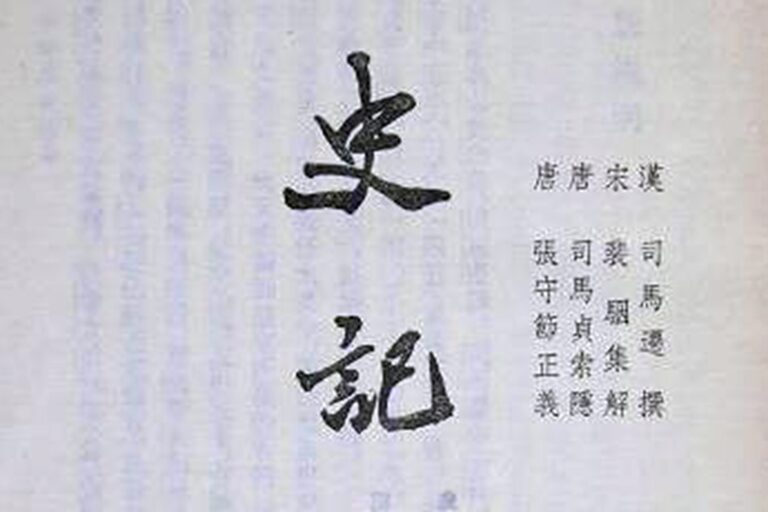 史記
漢 司馬遷 撰
宋 裴駰集解
唐 司馬貞索隱
唐 張守節正義